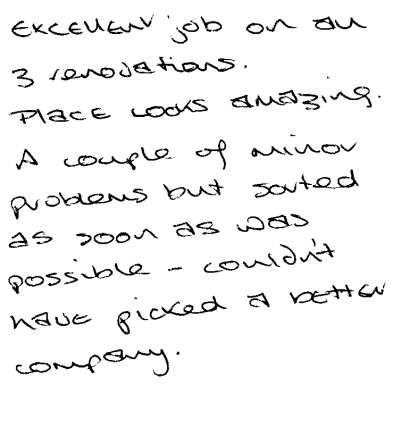 Excellent job on all
3 renovations.
Place looks amazing.
A couple of minor
problems but sorted
as soon as was
possible - couldn't
have picked a better
company.